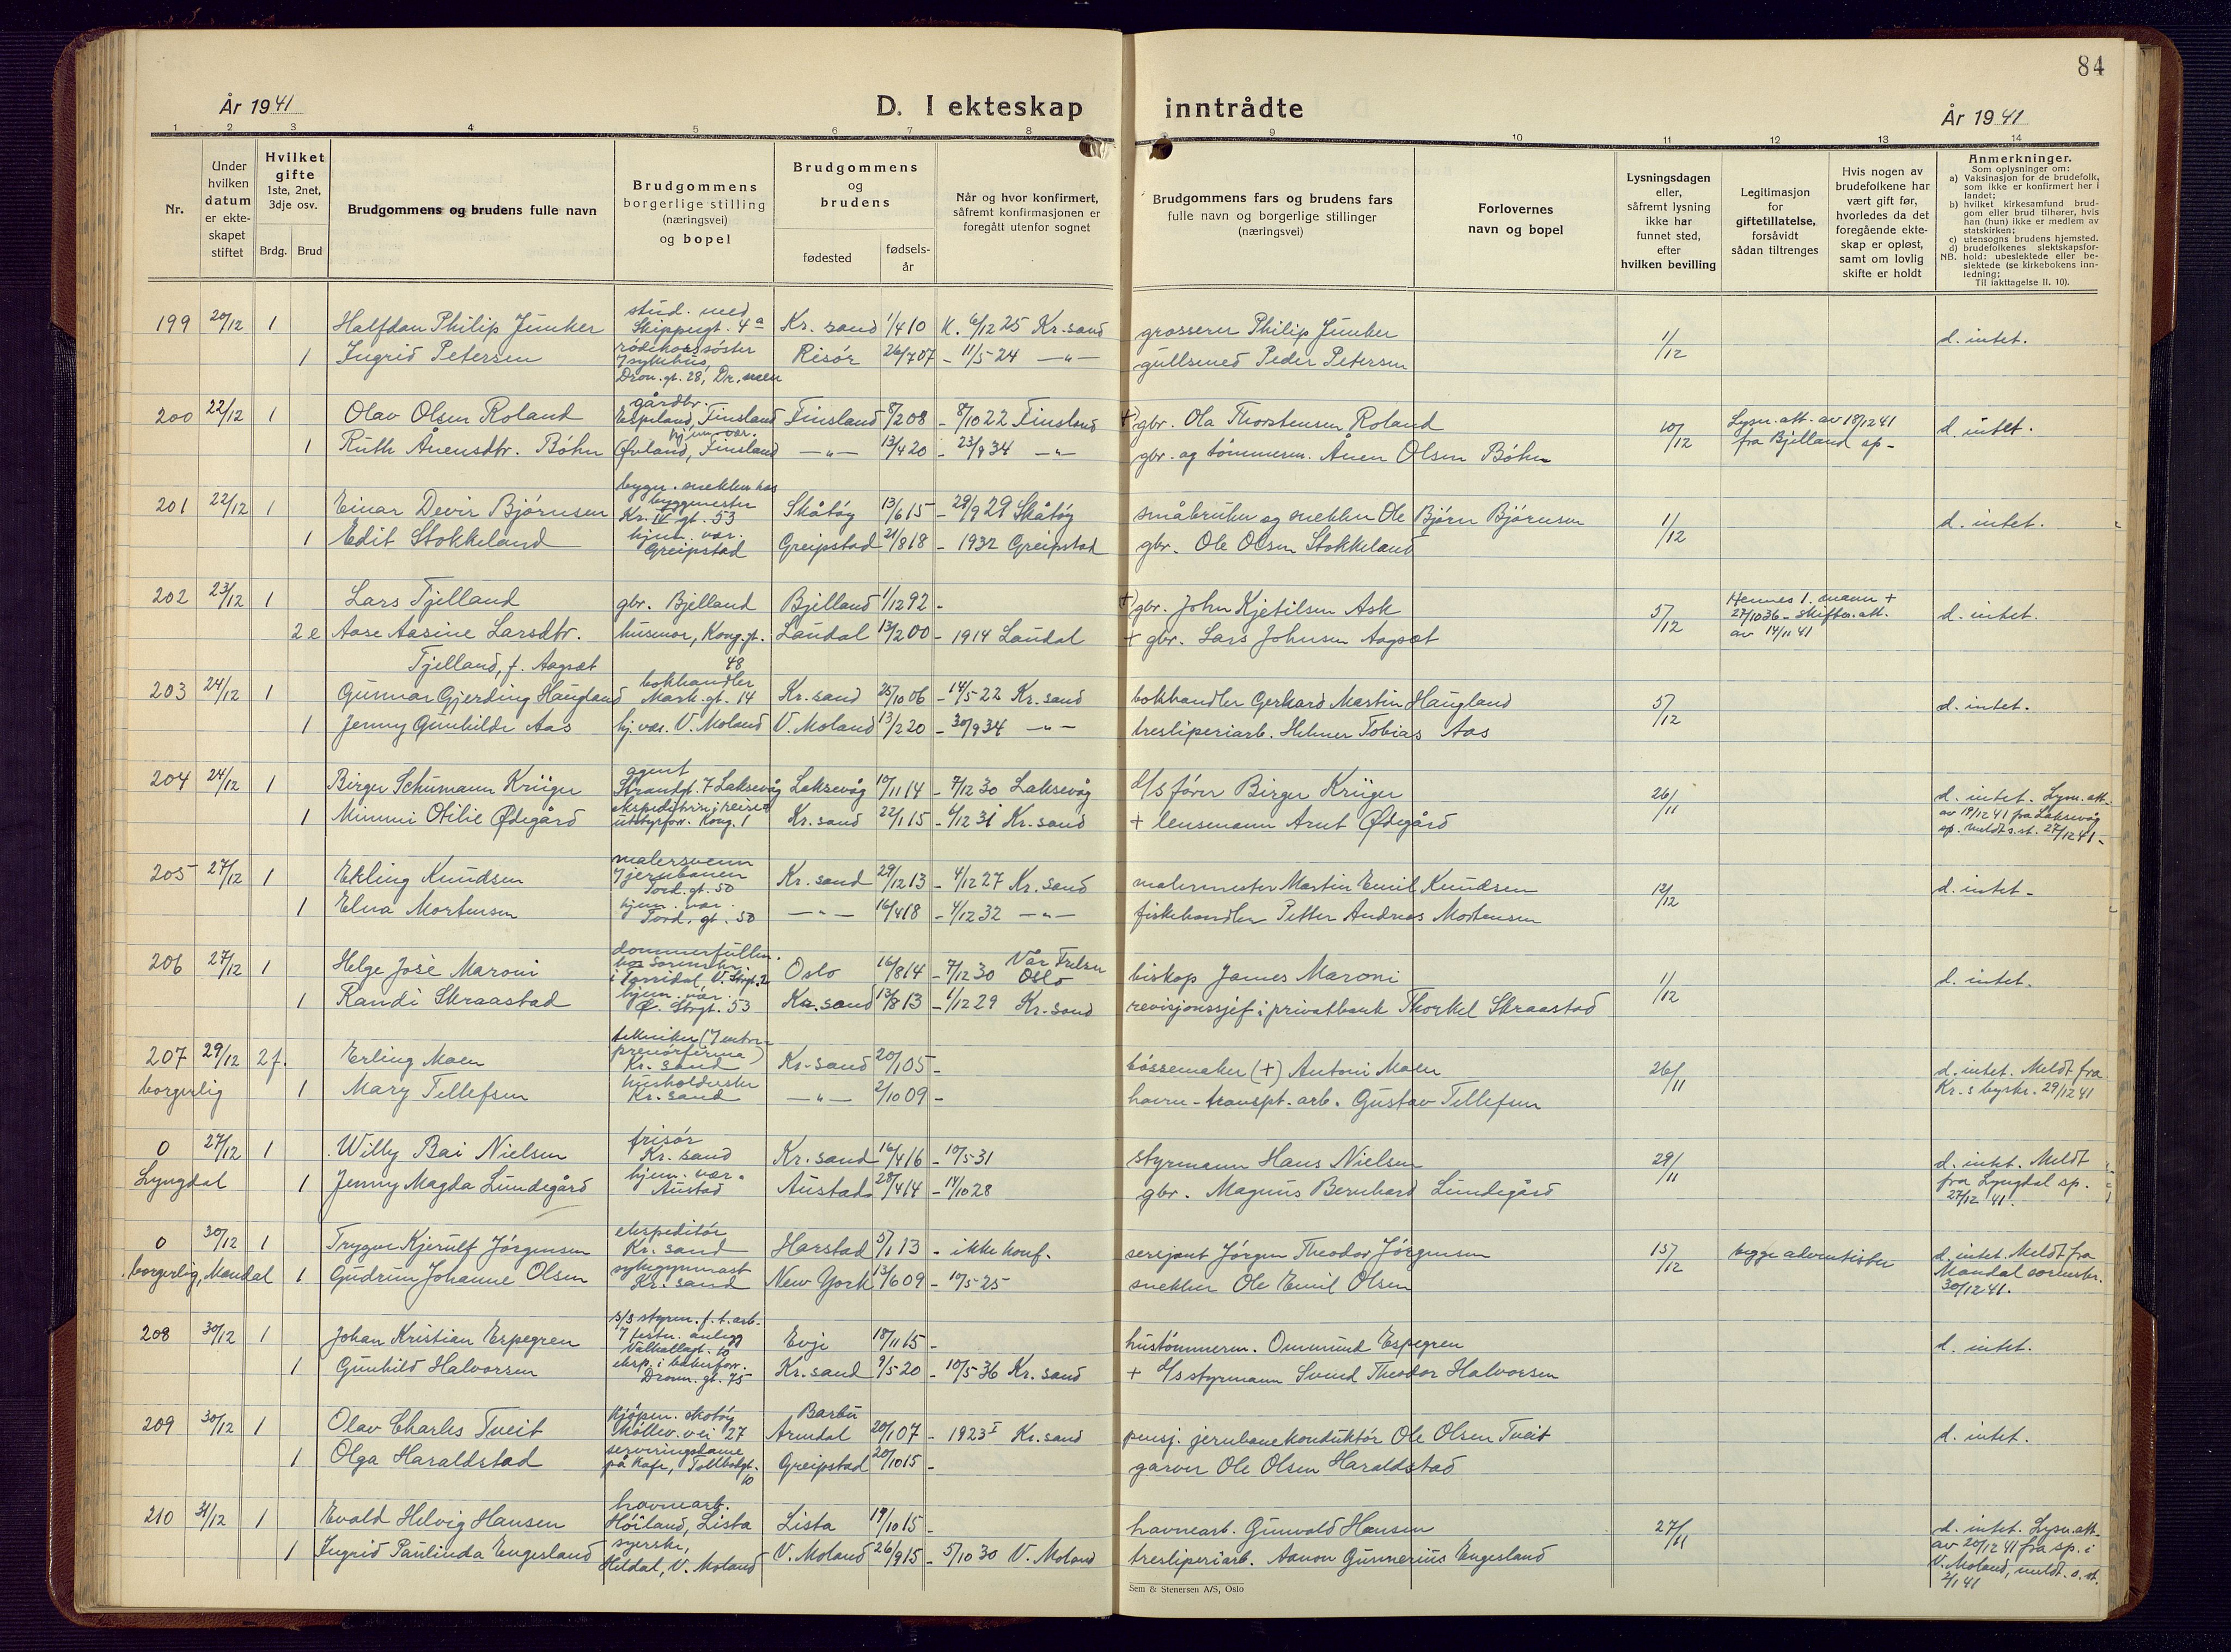 84
År 1941
D. I ekteskap inntrådte
År 1941
1 2 3 4 5 6 7 8 9 10 11 12 13 14
Nr.
Under hvilken datum er ekteskapet stiftet
Hvilket gifte 1ste, 2net, 3dje osv.
Brdg. Brud
Brudgommens og brudens fulle navn
Brudgommens borgerlige stilling (næringsvei) og bopel
Brudgommens og brudens
fødested
fødsels-år
Når og hvor konfirmert, såfremt konfirmasjonen er foregått utenfor sognet
Brudgommens fars og brudens fars fulle navn og borgerlige stillinger (næringsvei)
Forlovernes navn og bopel
Lysningsdagen eller, såfremt lysning ikke har funnet sted, efter hvilken bevilling
Legitimasjon for giftetillatelse, forsåvidt sådan tiltrenges
Hvis nogen av brudefolkene har vært gift før, hvorledes da det foregående ekteskap er opløst, samt om lovlig skifte er holdt
Anmerkninger.
Som oplysninger om:
a) Vaksinasjon for de brudefolk, som ikke er konfirmert her i landet;
b) hvilket kirkesamfund brudgom eller brud tilhører, hvis han (hun) ikke er medlem av statskirken;
c) utensogns brudens hjemsted.
d) brudefolkenes slektskapsforhold: ubeslektede eller beslektede (se kirkebokens innledning;
NB.
Til iakttagelse II. 10).
199 20/12 1 Halfdan Philip Junker stud. med Skippergt. 4a Kr. sand 1/4 10 K. 6/12 25 Kr. sand grosserer Philip Junker 1/12 d. intet.
1 Ingrid Petersen rödekorssöster Dron. gt. 28, Risör 26/7 07 - 11/5 24 -"- gullsmed Peder Petersen
200 22/12 1 Olav Olsen Roland gårdbr. Espeland, Finsland Finsland 8/2 08 - 8/10 22 Finsland +) gbr. Ola Thorstensen Roland 10/12 Lysn. att. av 18/12 41 fra Bjelland sp- d. intet.
1 Ruth Ånensdtr. Böhn hj.m. vær. Øvland, Finsland -"- 13/4 20 - 23/9 34 -"- gbr. og tömmerm. Ånen Olsen Böhn
201 22/12 1 Einar Devir Björnsen bygn. snekker hos byggmester Kr. IV gt. 53 Skåtöy 13/6 15 - 29/9 29 Skåtöy småbruker og snekker Ole Björn Björnsen 1/12 d. intet.
1 Edit Stokkeland hjem. vær. Greipstad Greipstad 21/8 18 - 1932 Greipstad gbr. Ole Olsen Stokkeland
202 23/12 1 Lars Tjelland gbr. Bjelland Bjelland 1/12 92 - +) gbr. John Kjetilsen Ask 5/12 Hennes 1. mann + 27/10 36 - skiftes. att. av 14/11 41 d. intet.
2 e Aase Aasine Larsdtr. Tjelland, f. Aagsæt husmor, Kong. gt. 48 Laudal 13/2 00 - 1914 Laudal + gbr. Lars Johnsen Aagsæt
203 24/12 1 Gunnar Gjerding Haugland bokhandler Mark. gt. 14 Kr. sand 25/10 06 - 14/5 22 Kr. sand bokhandler Gerhard Martin Haugland 5/12 d. intet.
1 Jenny Gunhilde Aas hj. vær. V. Moland V. Moland 13/2 20 - 30/9 34 -"- tresliperiarb. Helmer Tobias Aas
204 24/12 1 Birger Schumann Krüger agent Strandgt. 7 Laksevåg Laksevåg 10/11 14 - 7/12 30 Laksevåg d/s förer Birger Krüger 26/11 d. intet. Lysn. att. av 19/12 41 fra Laksevåg sp. meldt s. st. 27/12 41 -
1 Mimmi Otilie Ødegård Kong. 1 Kr. sand 22/1 15 - 6/12 31 Kr. sand + lensmann Arnt Ødegård
205 27/12 1 Erling Knudsen malersvenn Jernbanen Tord. gt. 50 Kr. sand 29/12 13 - 4/12 27 Kr. sand malermester Martin Emil Knudsen 12/12 d. intet -
1 Elna Mortensen hjem. vær. Tord. gt. 50 -"- 16/4 18 - 4/12 32 -"- fiskehandler Petter Andreas Mortensen
206 27/12 1 Helge José Maroni dommerfullm. hos Sorenskr. i Torridal V. Strgt. 2 Oslo 16/8 14 - 7/12 30 Vår Frelser Oslo biskop James Maroni 1/12 d. intet.
1 Randi Skraastad hjem. vær. Ø. Strgt. 53 Kr. sand 13/8 13 - 1/12 29 Kr. sand revisjonssjef i privatbank Thorkel Skraastad
207 29/12 2 f. Erling Moen tekniker (I entreprenörfirma) Kr. sand Kr. sand 20/1 05 - bössemaker (+) Antoni Moen 26/11 d. intet. Meldt fra Kr. s byskr. 29/12 41
borgerlig 1 Mary Tellefsen husholderske Kr. sand -"- 2/10 09 - havne-transpt. arb. Gustav Tellefsen
0 27/12 1 Willy Bai Nielsen frisör Kr. sand Kr. sand 16/4 16 - 10/5 31 styrmann Hans Nielsen 29/11 d. intet. Meldt fra Lyngdal sp. 27/12 41.
Lyngdal 1 Jenny Magda Lundegård hjem. vær. Austad Austad 28/4 14 - 14/10 28 gbr. Magnus Bernhard Lundegård
0 30/12 1 Trygve Kjerulf Jörgensen ekspeditör Kr. sand Harstad 5/1 13 - ikke konf. sersjant Jörgen Theodor Jörgensen 15/12 begge adventister d. intet. Meldt fra Mandal sorenskr. 30/12 41.
borgerlig, Mandal 1 Gudrun Johanne Olsen sykegymnast Kr. sand New York 13/6 09 - 10/5 25 snekker Ole Emil Olsen
208 30/12 1 Johan Kristian Espegren s/s styrm. f. t. arb. Valhallagt. 10 Evje 18/11 15 - hustömmerm. Ommund Espegren d. intet.
1 Gunhild Halvorsen eksp. i bakerforr. Dronn. gt. 75 Kr. sand 9/5 20 - 10/5 36 Kr. sand + d/s styrmann Svend Theodor Halvorsen
209 30/12 1 Olav Charles Tveit kjöpm. skotöy Möllev. vei 27 Barbu Arendal 20/1 07 - 1923 I Kr. sand pensj. jernbanekonduktör Ole Olsen Tveit d. intet.
1 Olga Haraldstad serveringsdame på kafe, Tollbodgt. 10 Greipstad 20/10 15 - garver Ole Olsen Haraldstad
210 31/12 1 Evald Helvig Hansen havnearb. Höiland, Lista Lista 19/10 15 - havnearb. Gunvald Hansen 27/11 d. intet. Lysn. att. av 20/12 41 fra sp. i V. Moland, meldt. s. st. 2/1 41
1 Ingrid Paulinda Engesland syerske, Heldal, V. Moland V. Moland 26/9 15 - 5/10 30 V. Moland tresliperiarb. Aanon Gunnerius Engesland
Sem & Stenersen A/S, Oslo